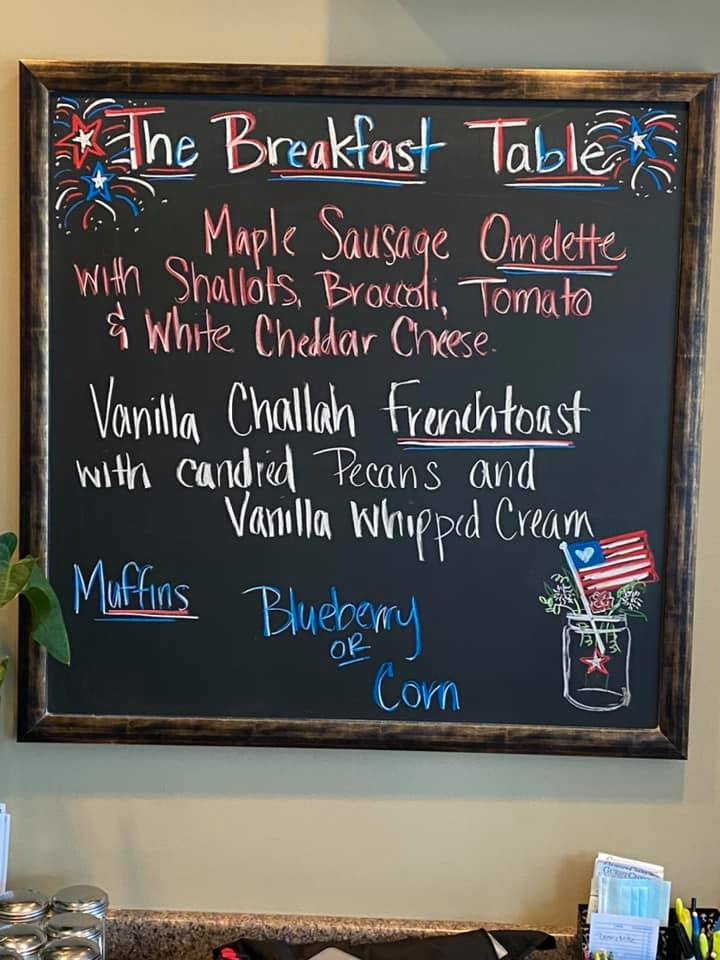 The Breakfast Table
Maple Sausage Omelette
with Shallots, Broccoli, Tomato
& White Cheddar Cheese.
Vanilla Challah Frenchtoast
with candied Pecans and
Vanilla Whipped Cream
Muffins
Blueberry
OR
Corn